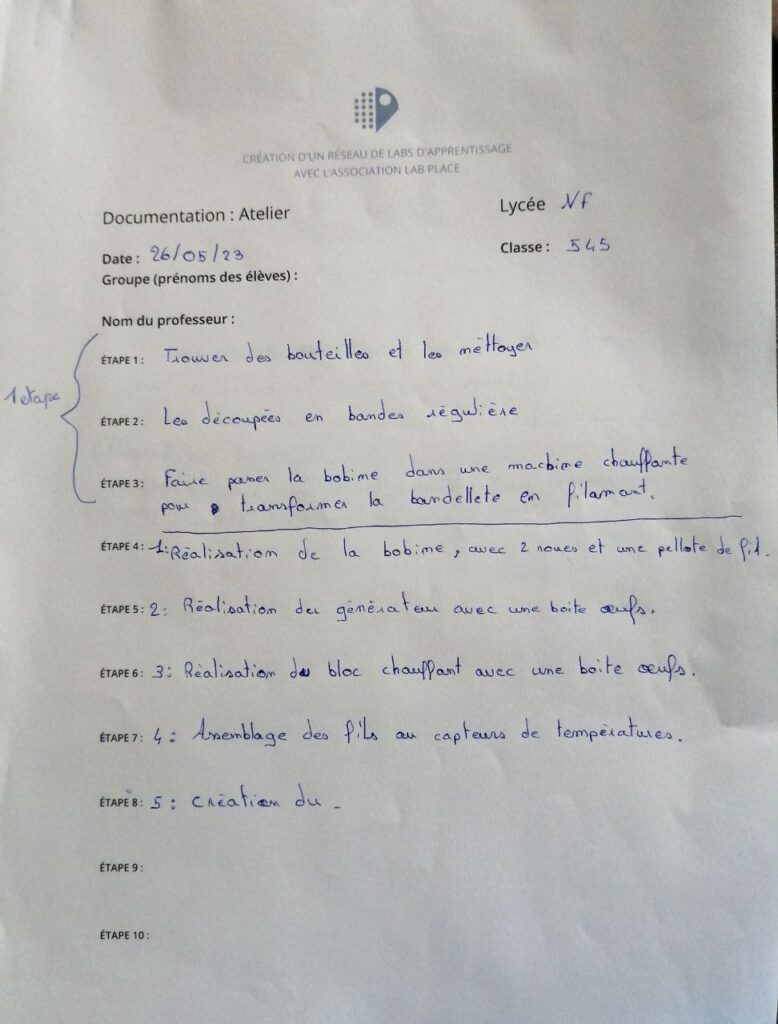 CRÉATION D'UN RÉSEAU DE LABS D'APPRENTISSAGE
AVEC L'ASSOCIATION LAB PLACE
Documentation : Atelier
Lycée Nf
Date : 26/05/23
Classe : 545
Groupe (prénoms des élèves) :
Nom du professeur :
1 etape
ÉTAPE 1 : Trouver des bouteilles et les méttoyer
ÉTAPE 2 : Les découpées en bandes régulière
ÉTAPE 3 : Faire passer la bobime dans une machine chauffante
pour transformer la bandellete en filamant.
ÉTAPE 4 : 1: Réalisation de la bobime, avec 2 roues et une pellote de fil.
ÉTAPE 5 : 2: Réalisation du générateur avec une boite œufs.
ÉTAPE 6 : 3: Réalisation du bloc chauffant avec une boite œufs.
ÉTAPE 7 : 4: Assemblage des fils au capteurs de températures.
ÉTAPE 8 : 5: Création du -
ÉTAPE 9 :
ÉTAPE 10 :